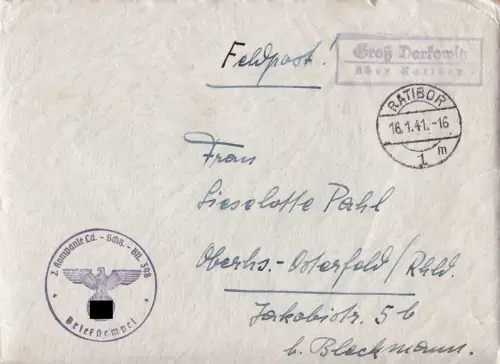 Feldpost!
Groß Darkowitz
über Ratibor
RATIBOR
16.1.41.-16
1 m
Frau
Lieselotte Pahl
Oberhs.-Osterfeld/Rhld.
Jakobistr. 5 b
b. Bleckmann.
2. Kompanie Ld.-Schtz.-Btl. 398
Briefstempel